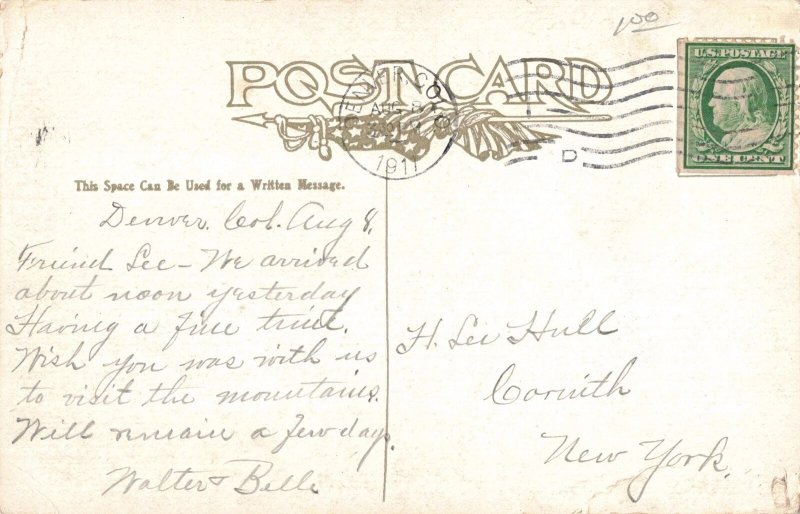 1.00
POST CARD
DENVER, COLO.
AUG 8
1911
D
U.S. POSTAGE
ONE CENT
This Space Can Be Used for a Written Message.
Denver. Col. Aug 8,
Friend Lee - We arrived
about noon yesterday
Having a fine time.
Wish you was with us
to visit the mountains.
Will remain a few days.
Walter & Belle
H. Lee Hull
Corinth
New York.